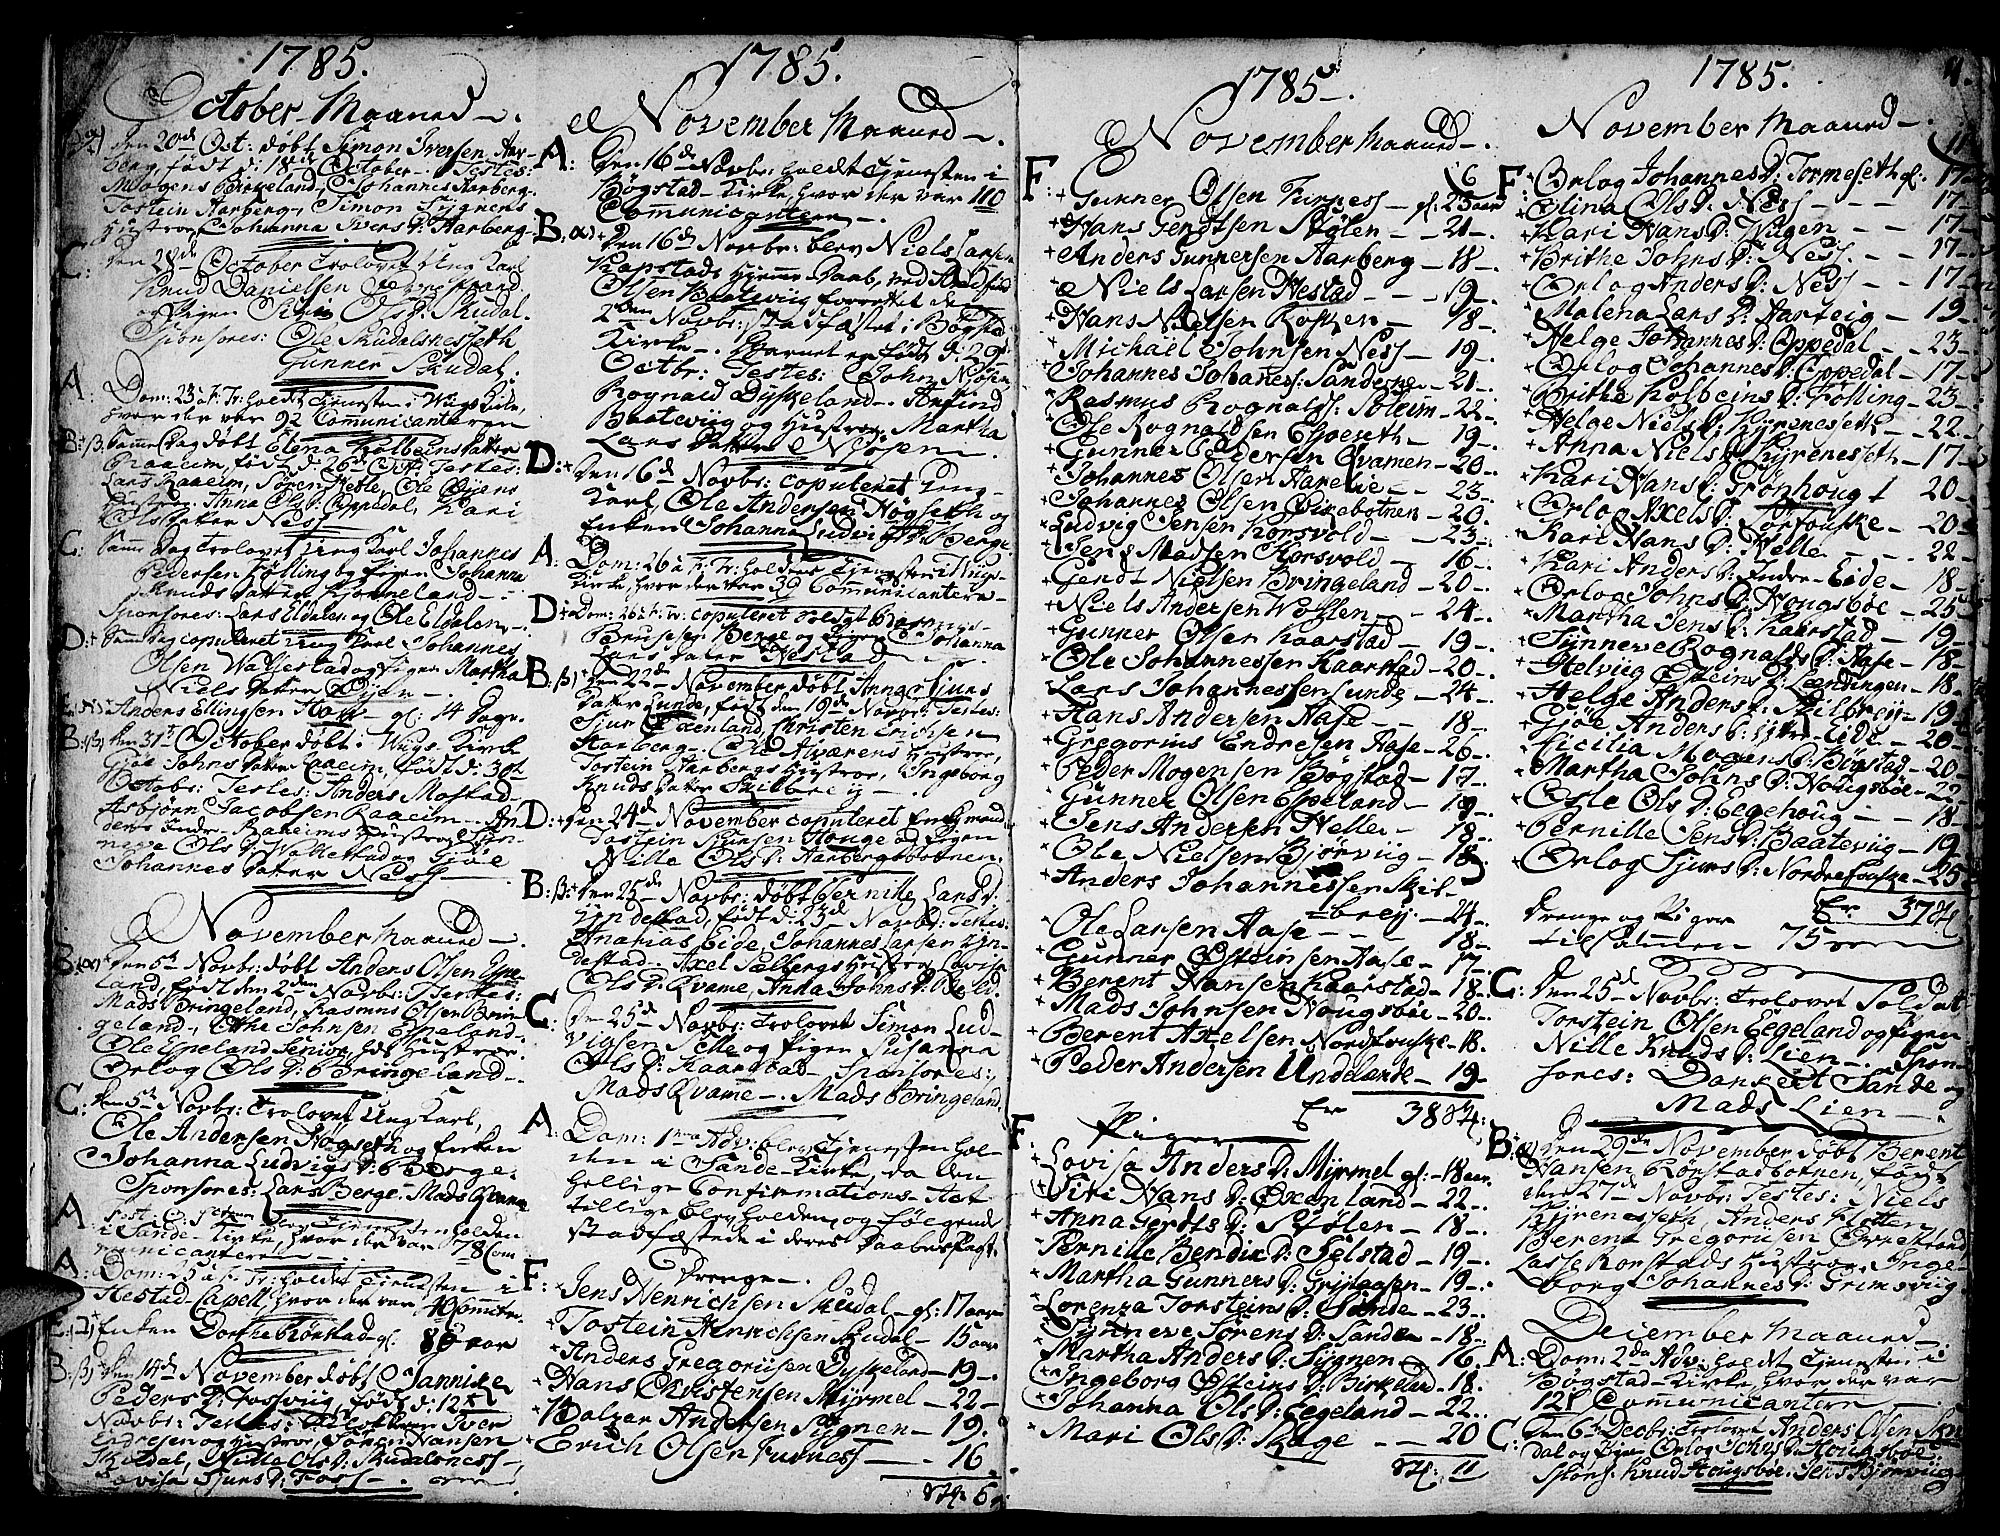 1785.
October Maaned.
den 20de Oct: døbt Simon Iversen Aar-
berg, født d: 18de October. Testes:
Mogens Birkeland, Johannes Aarberg.
Tostein Aarberg, Simon Sygnens
Hustroe, Johanna Ivers D: Aarberg.
C: den 28de October Trolovet Ung Karl
Knud Danielsen
og Pigen Siri Ols D: Skudal.
Sponsores: Ole Skudalsnesseth
Gunner Skudal.
A. Dom: 23 a F. Tr: holdt Tjenesten i Wigs Kirke,
hvor der var 92 Communicantere
B: β. Samme Dag døbt Elena Kolbeins Datter
Raaeim, født d 26de Oct. Testes:
Lars Raaeim, Søren Nesle, Ole
Hustroe, Anna Ols D: Oppedal, Kari
Ols Datter Ness
C: Samme Dag Trolovet Ung Karl Johannes
Pedersen Følling og Pigen Johanna
Knuds Datter Hjorneland
Sponsores: Lars Eldalen og Ole Eldalen.
D: Samme Dag copuleret Ung Karl Johannes
Olsen Wallestad og Pigen Martha
Niels Datter
Anders Ellingsen gl: 14 Dage.
B: β) den 31te October døbt i Wigs Kirke
Gjøe Johns Datter Raaeim, født d: 30te
Octobr: Testes: Anders Mostad
Asbjørn Jacobsen Raaeim. An-
ders Indre-Raaeims Hustroe, Syn-
neve Ols D: Wallestad og Gjøe
Johannes Datter Ness
November Maaned.
B: α) den 5te Novbr: døbt Anders Olsen Espe-
land, født den 2den Novbr: Testes:
Mads Bringeland, Rasmus Olsen Brin-
geland, Johnsen Espeland
Ole Espeland Senior hds Hustroe.
Orlog Ols D: Bringeland.
C: den 5te Novbr: Trolovet Ung Karl,
Ole Andersen Høgseth og Enken
Johanna Ludvigs D: Berge.
Sponsores: Lars Berge. Mads Qvame
A: Tjenesten holden
i Sande-Kirke, hvor der var 78 Com-
municantere
A: Dom: 25 a F. Tr: holdt Tjenesten i
Hestad-Capell, hvor der var 40
Enken Dorthe Rørstad gl. 86 aar
B: β) den 14de November døbt Jannike
Peders D: Fossviig, født d: 12te
Novbr: Testes: Iver
Endresen og Hustroe, Søren Hansen
Skudal, Nille Ols D: Skudalsness
Lovisa Sjurs D: Foss.
1785.
November Maaned.
A: Den 16de Novbr: holdt Tjenesten i
Bøgstad-Kirke, hvor der var 110
Communicantere.
B: α) Den 16de Novbr: blev Niels Larsen
Kapstads Hjemme-Daab, ved Arnfind
Olsen Baateviig forrettet den
2den Novbr: stadfæstet i Bøgstad
Kirke. Barnet er født d: 29de
Octbr: Testes: John Njøsen
Rognald Dyskeland. Anfind
Baateviig og Hustroe, Martha
Lars Datter Njøsen.
D: den 16de Novbr: copuleret Ung-
Karl, Ole Andersen Høgseth og
Enken Johanna Ludvigs D: Berge.
A: Dom: 26 a F. Tr: holden Tjenesten i Wigs-
Kirke, hvor der var 39 Communicantere
D: Dom: 26 a F. Tr: copuleret
Berge og Pigen Johanna
Lars Datter Nestad
B: β) den 22de November døbt Anna Sjurs
Datter Lunde, født den 19de Novbr: Testes:
Sjur Øxenland, Christen Erichsen
Aarberg. Ole Alværens Hustroe,
Tostein Aarbergs Hustroe, Ingeborg
Knuds Datter Skilbreig.
D: den 24de November copuleret Enkemand
Tostein Sjursen Houge og Pigen
Nille Ols D: Aarbergsbotnen.
B: β: den 25de Novbr: døbt Pernille Lars D:
Yndestad, født d: 23de Novbr: Testes:
Ananias Eide, Johannes Larsen Yn-
destad. Axel Solbergs Hustroe, Lovise
Ols D: Qvame, Anna Johns D:
C: Den 25de Novbr: Trolovet Simon Lud-
vigsen Selle og Pigen Susanna
Ols D: Kaarstad. Sponsores:
Mads Qvame. Mads Bringeland.
A: Dom: 1ma Adv: blev Tjenesten hol-
den i Sande-Kirke, da den
hellige Confirmations-Act
tillige blev holden, og følgende
stadfæstede i deres Daabes Pagt.
Drenge.
F: Jens Henrichsen Skudal – gl: 17 aar
Tostein Henrichsen Skudal – 15 aar
Anders Gregoriisen Dyskeland – 19.
Hans Christensen Myrmel – 22
Balzer Andersen Sygnen – 19.
Erich Olsen Furness – 16.
Stk: 6
1785.
November Maaned.
F: 6
Gunner Olsen Furness – gl: 23 aar
Hans Gerdtsen Støhlen – 21
Anders Gunnersen Aarberg – 18
Niels Larsen Nestad – 19
Hans Nielsen – 18
Michaël Johnsen Ness – 19
Johannes Johaness: Sanderne – 21
Rasmus Rognalds: Soleim – 22
Ole Rognaldsen Espeseth – 19
Gunner Pedersen Qvamen – 20
Johannes Olsen Aarelie – 23
Johannes Olsen Birkebotnen – 20
Ludvig Jensen Korsvold – 23
Jens Madsen Korsvold – 16
Gerdt Nielsen Bringeland – 20
Niels Andersen Wollen – 24
Gunner Olsen Kaarstad – 19
Ole Johannessen Kaarstad – 20
Lars Johannessen Lunde – 24
Hans Andersen Aase – 18
Gregorius Endresen Aase – 26
Peder Mogensen Bøgstad – 17
Gunner Olsen Espeland – 19
Jens Andersen Helle – 18
Ole Nielsen Bjørviig – 18
Anders Johannessen Skil-
=brey. – 24
Ole Larsen Aase – 18
Gunner Østeinsen Aase – 17
Berent Hansen Kaarstad – 18
Mads Johnsen Hougsbøe – 20
Berent Axelsen Nordfouske – 18.
Peder Andersen Undelærke – 19
Er 38 Stk:
F: Piger
Lovisa Anders D: Myrmel gl: 18 aar.
Siri Hans D: Øxenland – 22
Anna Gerdts D: Støhlen – 18
Pernille Bendix D: Selstad – 19
Martha Gunners D: – 19
Lorenza Torsteins D: Sande – 23
Synneve Sørens D: Sande – 18
Martha Anders D: Sygnen – 16.
Ingeborg Østeins D: Birkeland – 18.
Johanna Ols D: Eegeland – 22
Mari Ols D: Skage – 20
Stk: 11
1785. 4.
November Maaned.
11
F: Orlog Johannes D: Tormeseth gl: 17
Olina Ols D: Ness – 17
Kari Hans D: Wiigen – 17
Brithe Johns D: Ness – 17
Orlog Anders D: Ness – 17
Malena Lars D: Aarteig – 19
Helge Johannes D: Oppedal – 23
Orlog Johannes D: Oppedal – 17
Brithe Kolbeins D: Følling – 23
Helge Niels D: Kyrenesseth – 22
Anna Niels D: Kyrenesseth – 17
Kari Hans D: Grønhoug – 20
Orlog Axels D: Sørfouske – 20
Kari Hans D: Helle – 22
Kari Anders D: Indre-Eide – 18
Orlog Johns D: Hougsbøe – 25
Martha Jens D: Kaarstad – 19
Synneve Rognalds D: Aase – 18
Helviig Østeins D: Lendingen – 18
Helge Anders D: Skilbreij – 19
Gjøe Anders D: Ytre-Eide – 20
Cicilia Mogens D: Bøgstad – 20
Martha Johns D: Hougsbøe – 22
Osle Ols D: Eegehoug – 18
Pernille Jens D: Baateviig – 19
Orlog Sjurs D: Nordrefouske – 25
Er 37 Stk
Drenge og Piger
tilsammen 75
C: Den 25de Novbr: Trolovet Soldat
Torstein Olsen Eegeland og Pigen
Nille Knuds D: Lien. Spon-
sores: Dankert Sande og
Mads Lien
B: α) den 29de November døbt Berent
Hansen Rørstadbotnen, født
den 27de Novbr: Testes: Niels
Kyrenesseth, Anders Flotten
Berent Gregoriisen Birkeland
Lasse Rørstads Hustroe, Inge-
borg Johannes D: Grimsviig.
December Maaned
A: Dom: 2da Adv: holdt Tjenesten i
Bøgstad-Kirke, hvor der var
121 Communicantere.
C: Den 6te Decbr: Trolovet Anders Olsen Sku-
dal og Pigen Orlog Johns D: Hougsbøe.
Spons: Knud Hougsbøe. Jens Bjørviig